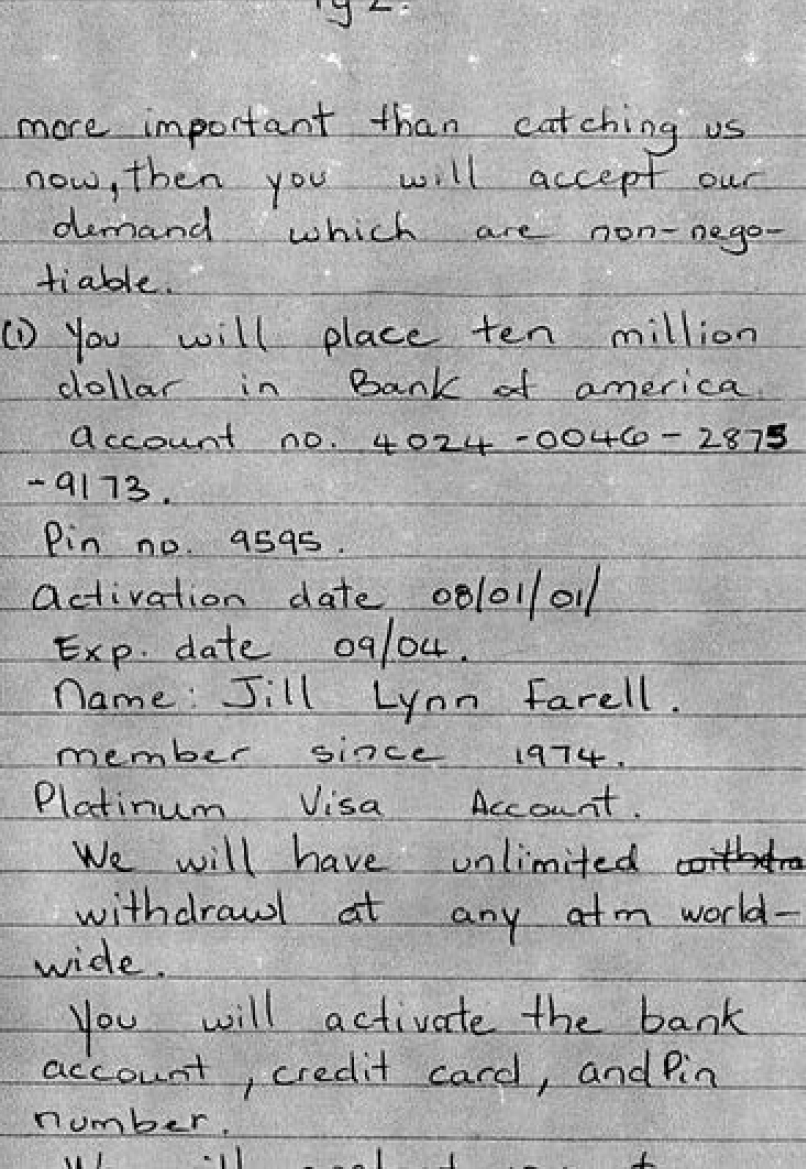 Pg 2.
more important than catching us
now, then you will accept our
demand which are non-nego-
tiable.
(1) You will place ten million
dollar in Bank of america
account no. 4024-0046-2875
-9173.
Pin no. 9595.
Activation date 08/01/01/
Exp. date 09/04.
Name: Jill Lynn Farell.
member since 1974.
Platinum Visa Account.
We will have unlimited withdra
withdrawl at any atm world-
wide.
You will activate the bank
account, credit card, and Pin
number.